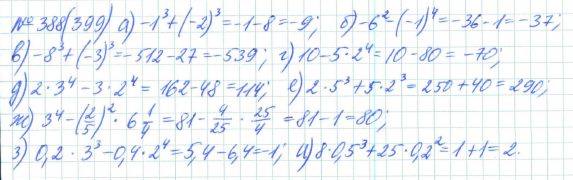 № 388(399) а) -1³ + (-2)³ = -1-8 = -9; б) -6² - (-1)⁴ = -36-1 = -37;
в) -8³ + (-3)³ = -512-27 = -539; г) 10-5·2⁴ = 10-80 = -70;
д) 2·3⁴ - 3·2⁴ = 162-48 = 114; е) 2·5³ + 5·2³ = 250+40 = 290;
ж) 3⁴ - (2/5)² · 6 1/4 = 81 - 4/25 · 25/4 = 81-1 = 80;
з) 0,2·3³ - 0,4·2⁴ = 5,4-6,4 = -1; и) 8·0,5³ + 25·0,2² = 1+1 = 2.